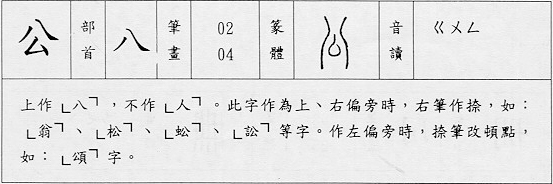 公 部首 八 筆畫 02 04 篆體 音讀 ㄍㄨㄥ
上作「八」，不作「人」。此字作為上、右偏旁時，右筆作捺，如：
「翁」、「松」、「蚣」、「訟」等字。作左偏旁時，捺筆改頓點，
如：「頌」字。